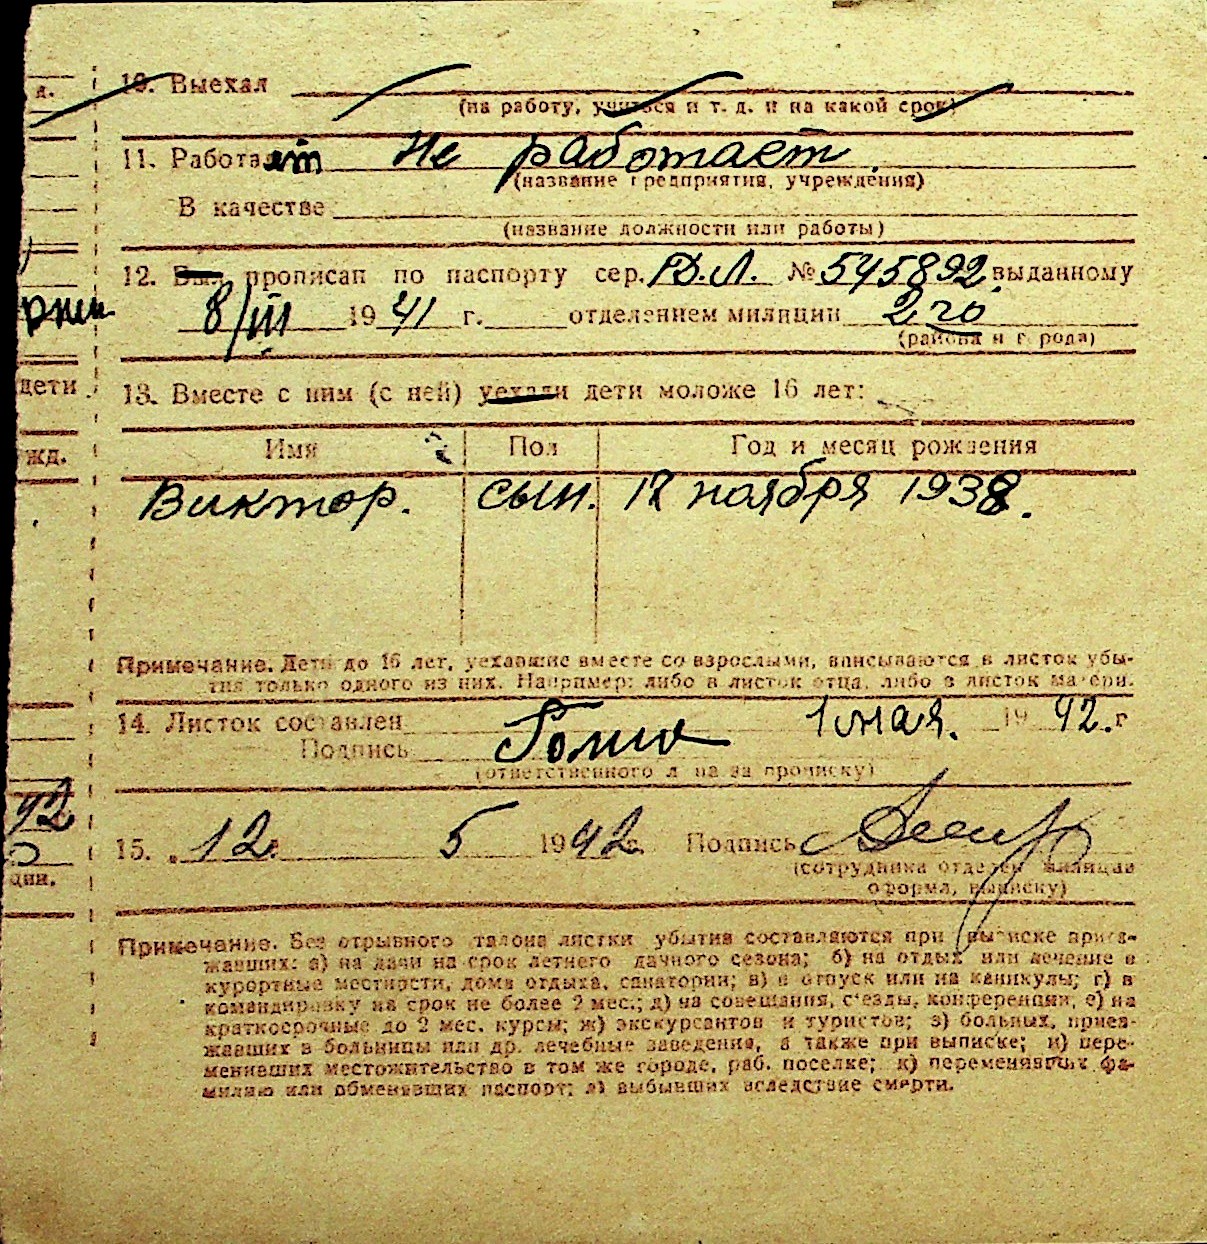 д.
10. Выехал
(на работу, учиться и т. д. и на какой срок)
11. Работает Не работает.
(название предприятия, учреждения)
В качестве
(название должности или работы)
12. Был прописан по паспорту сер. РД.Л. № 545892 выданному
8/III 1941 г. отделением милиции 2го
(района и города)
дети
13. Вместе с ним (с ней) уехали дети моложе 16 лет:
жд.
Имя Пол Год и месяц рождения
Виктор. сын. 12 ноября 1938.
Примечание. Дети до 16 лет, уехавшие вместе со взрослыми, вписываются в листок убы-
тия только одного из них. Например: либо в листок отца, либо в листок матери.
14. Листок составлен 1 мая. 1942. г
Подпись
(ответственного лица за прописку)
42
15. 12 5 1942 г. Подпись
(сотрудника отделен. милиции
ции.
оформл. выписку)
Примечание. Без отрывного талона листки убытия составляются при выписке приез-
жавших: а) на дачи на срок летнего дачного сезона; б) на отдых или лечение в
курортные местности, дома отдыха, санатории; в) в отпуск или на каникулы; г) в
командировку на срок не более 2 мес.; д) на совещания, с'езды, конференции; е) на
краткосрочные до 2 мес. курсы; ж) экскурсантов и туристов; з) больных, приез-
жавших в больницы или др. лечебные заведения, а также при выписке; и) пере-
менивших местожительство в том же городе, раб. поселке; к) переменивших фа-
милию или обменявших паспорт; л) выбывших вследствие смерти.